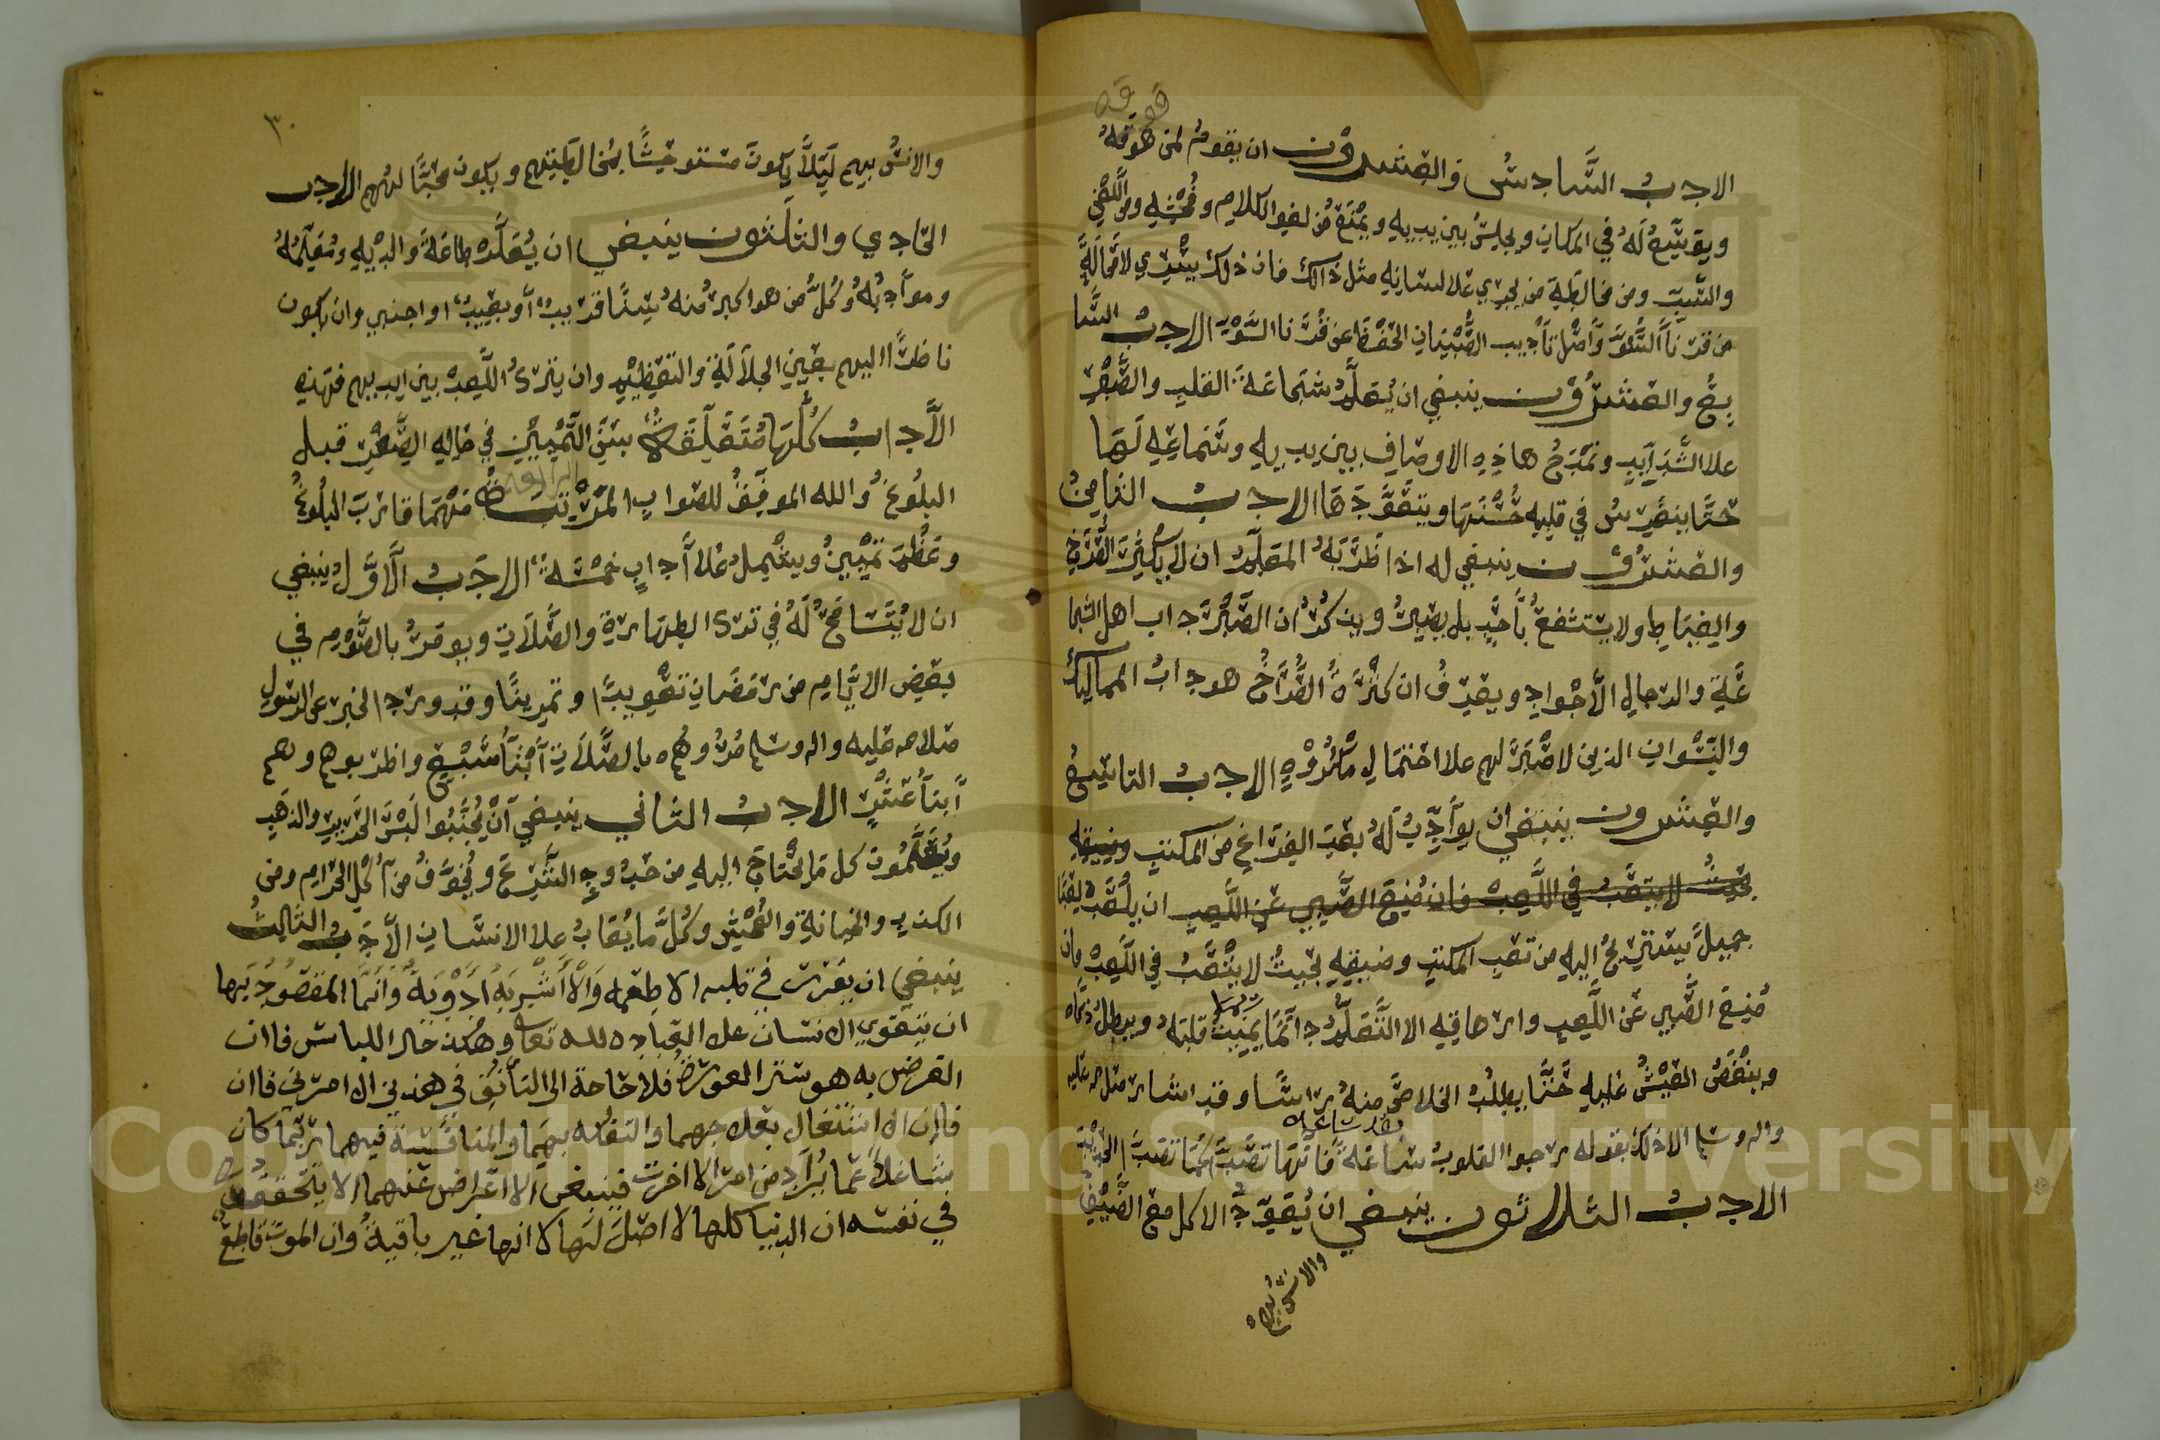 فوقه
الادب السادس والعشرون ان يقوم لمن هو فوقه
ويوسّع له في المكان ويجلس بين يديه ويمنع من لغو الكلام وفحشه ومن اللعن
والسب ومن مخالطة من يجري علا لسانه مثل ذالك فان ذلك يسري لا محالة
من قرنآء السّوء واصل تأديب الصبيان الحفظ عن قرنا السوء الادب السا
بع والعشرون ينبغي ان يعلم شجاعة القلب والصبر
علا الشدآيد وتمدح هاذه الاوصاف بين يديه وشجاعة لها
حتا ينغرس في قلبه حسنها ويتعود ها الادب الثامن
والعشرون ينبغي له اذا ضربه المعلم ان لا يكثر الصراخ
والعياط ولا يستشفع بأحد بل يصبر ويذكر ان الصبر داب اهل الشجا
عة والرجال الأجواد ويعرف ان كثرة الصراخ هو داب المماليك
والنسوان الذين لا صبر لهم علا احتمال مكروه الادب التاسع
والعشرون ينبغي ان يوأذن له بعد الفراغ من المكتب وضيقه
بحيث لا يتعب في اللعب فان منع الصبي عن اللعب ان يلعب لعبا
جميل يستريح اليه من تعب المكتب وضيقه بحيث لا يتعب في اللعب فان
منع الصبي عن اللعب وارهاقه الا التعلم دائما يميت قلبه ويبطل ذكاه
وينغص العيش عليه حتا يطلب الخلاص منه راسا وقد اشار صلا الله عليه
واله وسلم الا ذلك بقوله روحوا القلوب ساعة بعد ساعه فانها تصدا كما تصدا الحديد
الادب الثلاثون ينبغي ان يعود الاكل مع الضيف
والانس بهم
٣٠
والانس بهم ليلا يكون مستوحشا بمخالطتهم ويكون محبا لهم الادب
الحادي والثلثون ينبغي ان يعلم طاعة والديه ومعلمه
وموأدبه وكل من هو اكبر منه سنا قريب أو بعيد او اجنبي وان يكون
ناظرا اليهم بعين الجلالة والتعظيم وان يترك اللعب بين ايديهم فهذه
الآداب كلها متعلقة بسن التمييز في حاله الصغر قبل
البلوغ والله الموفق للصواب المرتبة الرابعة فمهما قارب البلوغ
وعظم تمييزه ويشتمل علا آداب خمسة الادب الاول ينبغي
ان لا يتسامح له في ترك الطهارة والصلات ويومر بالصوم في
بعض الايام من رمضان تعويدا وتمرينا وقد ورد الخبر عن الرسول
صلا الله عليه واله وسلم مروهم بالصلات أبنا سبع واضربوهم وهم
ابنا عشر الادب الثاني ينبغي ان يجنبوا لبس الحرير والذهب
ويعلمون كل ما يحتاج اليه من حدود الشرع ويخوف من اكل الحرام ومن
الكذب والخيانة والفحش وكل ما يعاب علا الانسان الادب الثالث
ينبغي ان يغرس في قلبه الاطعمه والاشربه ادوية وانما المقصود بها
ان يتقوى الانسان على العباده لله تعا وهكذ حال اللباس فاان
الغرض به هو ستر العوره فلا حاجة الى التأنق في هذين الامرين فاان
فاان الاشتغال بعلاجهما والتفكه بهما والمنافسة فيهما ربما كان
شاغلا عما يراد من امر الاخرت فينبغي الاعراض عنهما الا بتحقق
في نفسه ان الدنيا كلها لا اصل لها لا انها غير باقية وان الموت قاطع
Copyright © King Saud University